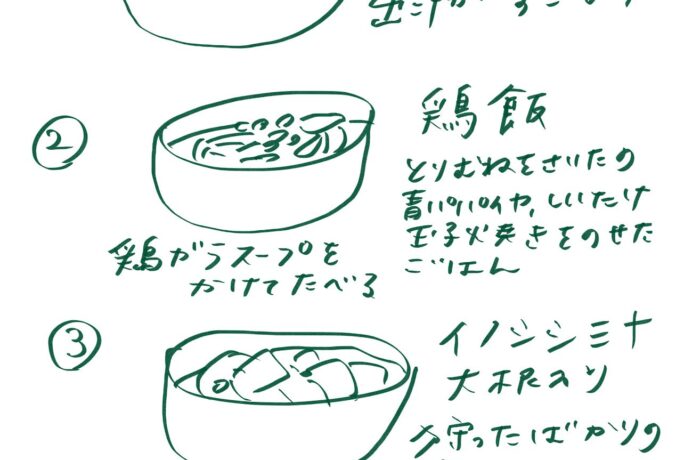 ②
鶏飯
とりむねをさいたの
青パパイヤ、しいたけ
玉子火焼きをのせた
ごはん
鶏ガラスープを
かけてたべる
③
イノシシミナ
大根入り
狩ったばかりの